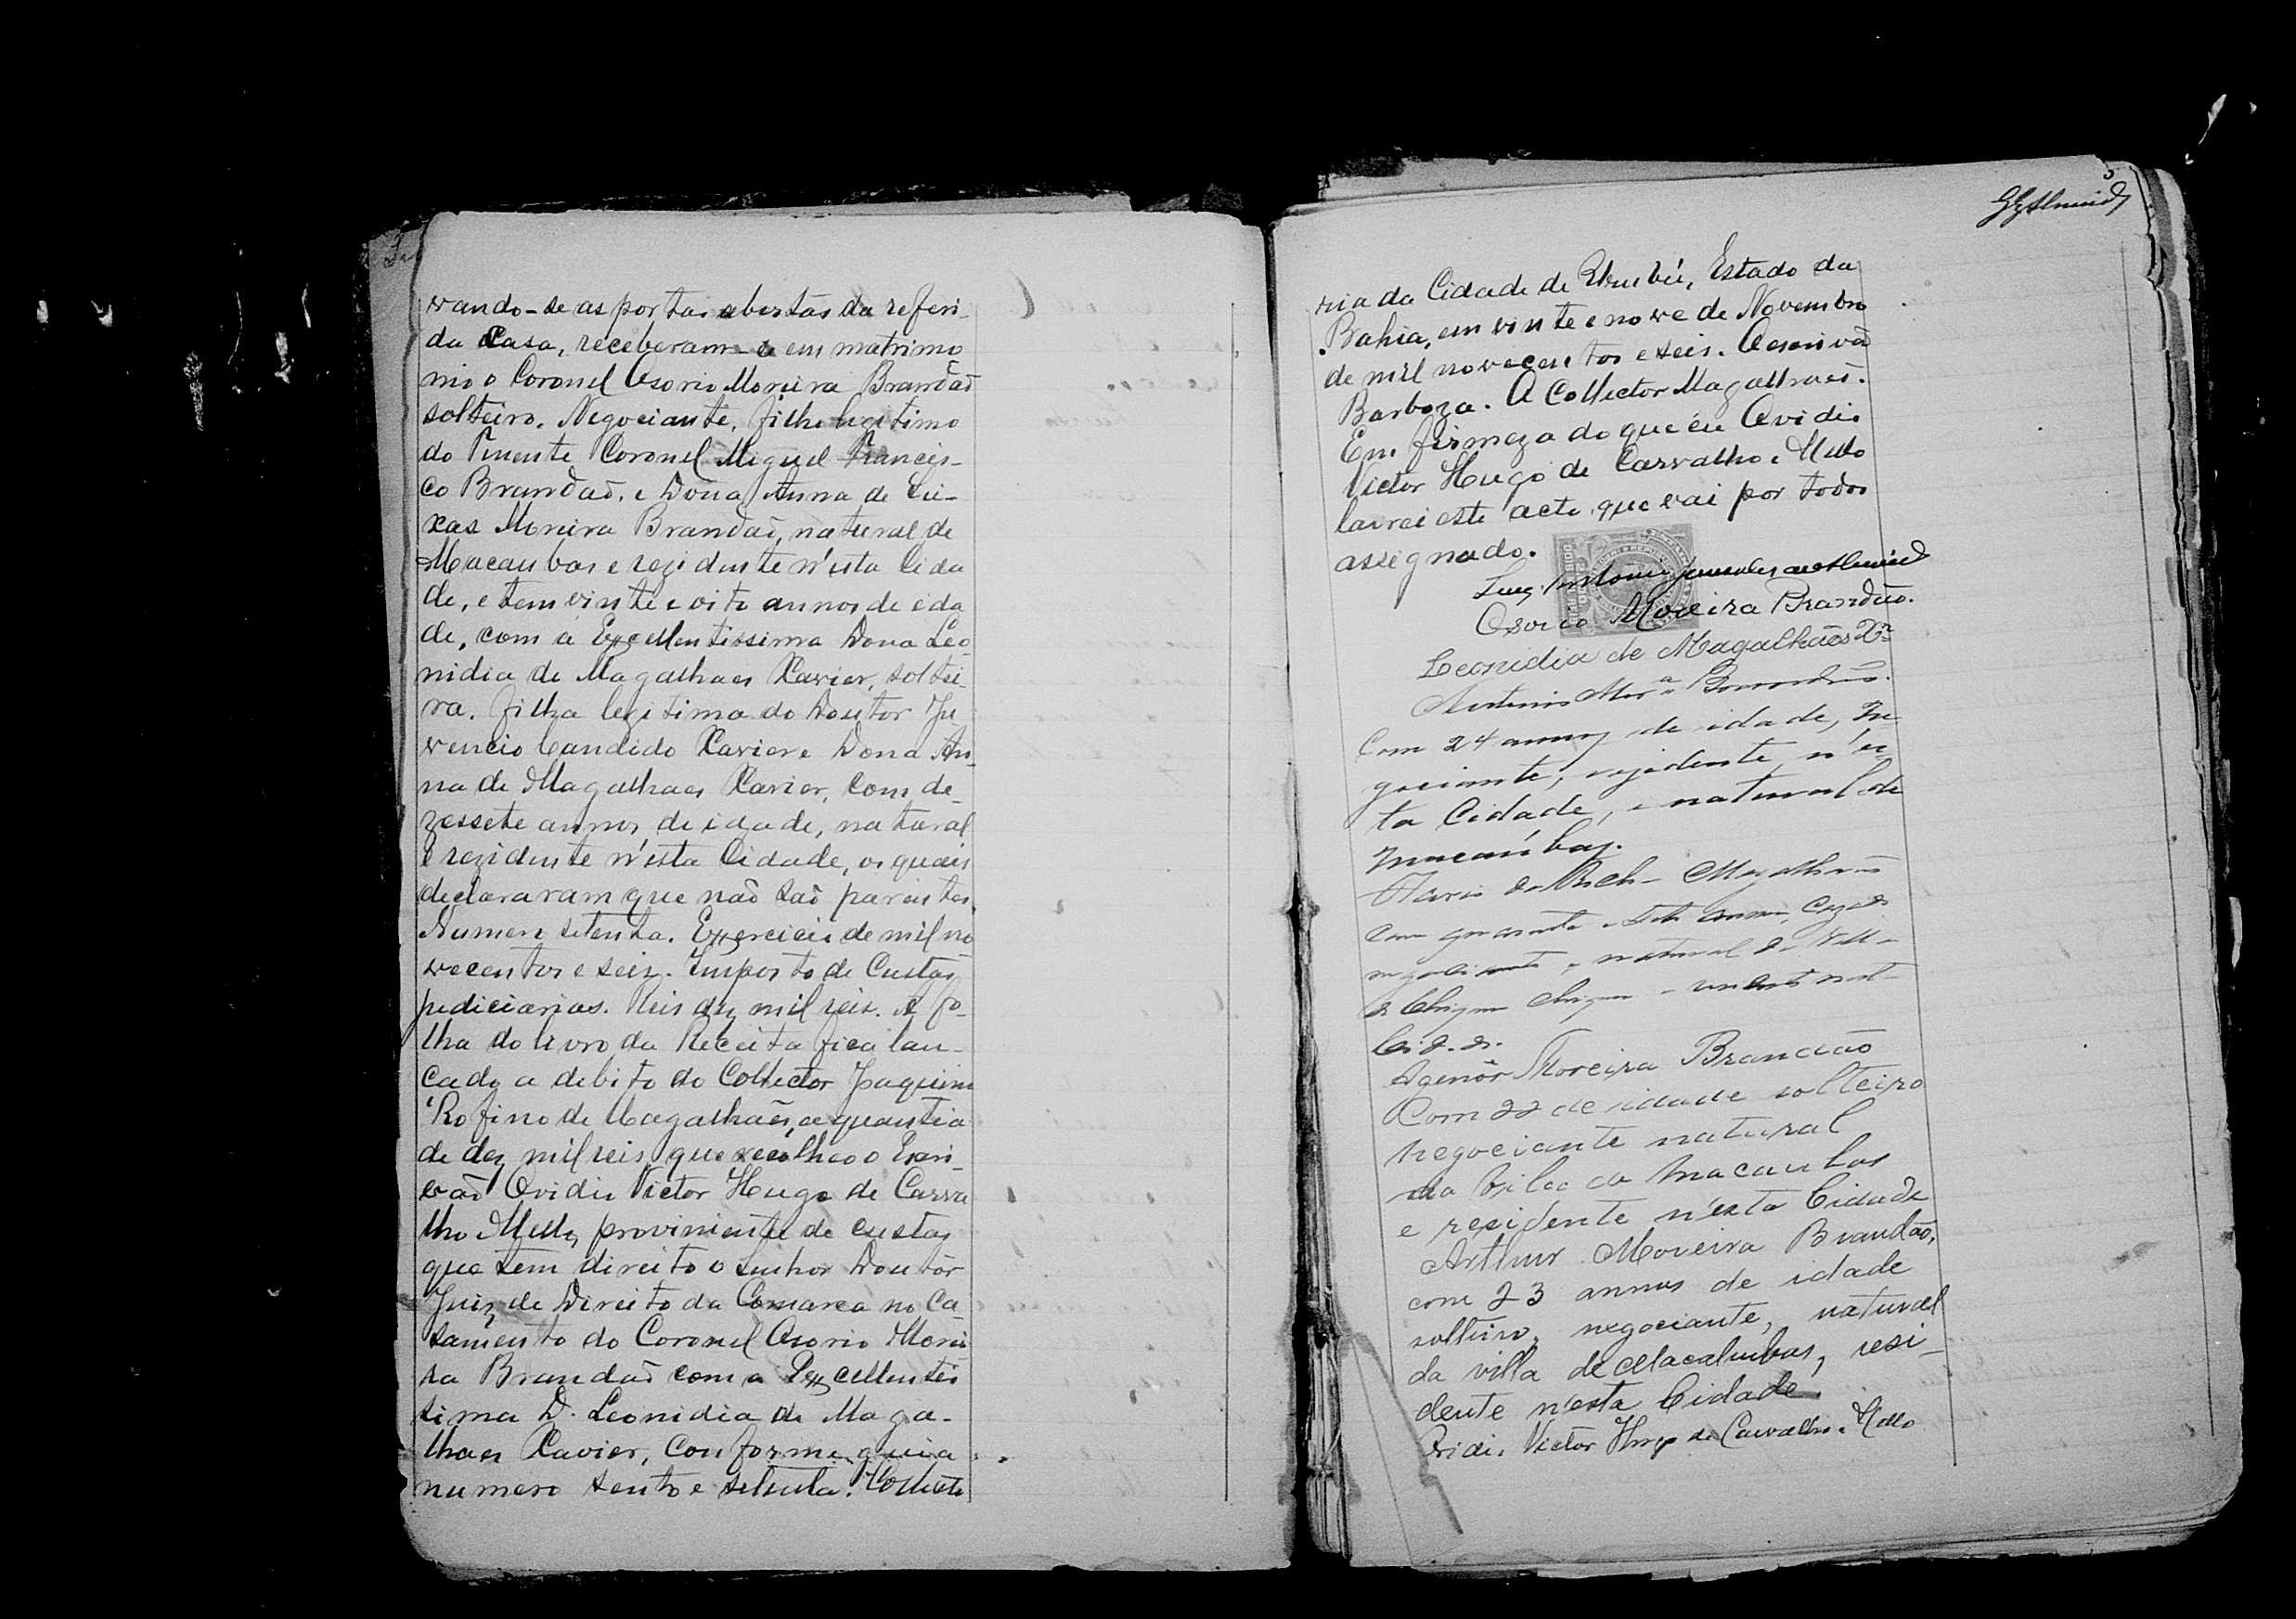 vando-se as portas abertas da referi-
da Casa, receberam-se em matrimo
nio o Coronel Osorio Moreira Brandaõ
solteiro. Negociante, filho legitimo
do Tinente Coronel Miguel Francis-
co Brandaõ, e Dona Anna de Sei-
xas Moreira Brandaõ, natural de
Macaubas e rezidente n'esta Cida
de, e tem vinte e oito annos de eda
de, com a Excellentissima Dona Leo
nidia de Magalhaes Xavier, soltei-
ra. filha legitima do Doutor Ju
vencio Candido Xavier e Dona An-
na de Magalhaes Xavier, com de-
zessete annos de idade, natural
e rezidente n'esta Cidade, os quais
declararam que naõ saõ parentes.
Numero setenta. Exercicio de mil no
vecentos e seis. Imposto de Custas
judiciarias. Reis dez mil reis. A fo-
lha do livro da Receita fica lan-
cado a debito do Collector Joaquim
Rofino de Magalhaẽs, a quantia
de dez mil reis que recolheo o Escri-
vaõ Ovidio Victor Hugo de Carva
lho Mello, proviniente de custas
que tem direito o Senhor Doutor
Juiz de Direito da Comarca no Ca
samento do Coronel Osorio Morei
ra Brandaõ com a Excellentis
sima D. Leonidia de Maga-
lhaes Xavier, conforme guia
numero sento e setenta. Collecto
ria da Cidade de Urubú, Estado da
Bahia, em vinte e nove de Novembro
de mil novecentos e seis. O escrivaõ
Barboza. O Collector Magalhaes.
Em firmeza do que eu Ovidio
Victor Hugo de Carvalho e Mello
lavrei este acto que vai por todos
assignado.
Osorio Moreira Brandão.
Leonidia de Magalhães Xer
Antonio Mora Brandão.
Com 24 annos de idade, ne-
gociante, rezidente n'es-
ta Cidade, e natural de
Macaúbas.
Magalhães
com quarenta e sete annos, Cazado
negociante, natural da Villa
de Chique Chique
Cid.e
Agenôr Moreira Brandão
Com 22 de idade solteiro
negociante natural
da Vila de Macaubas
e residente n'esta Cidade
Arthur Moreira Brandão,
com 23 annos de idade
solteiro, negociante, natural
da villa de Macahubas, resi-
dente n'esta Cidade.
Ovidio Victor Hugo de Carvalho e Mello